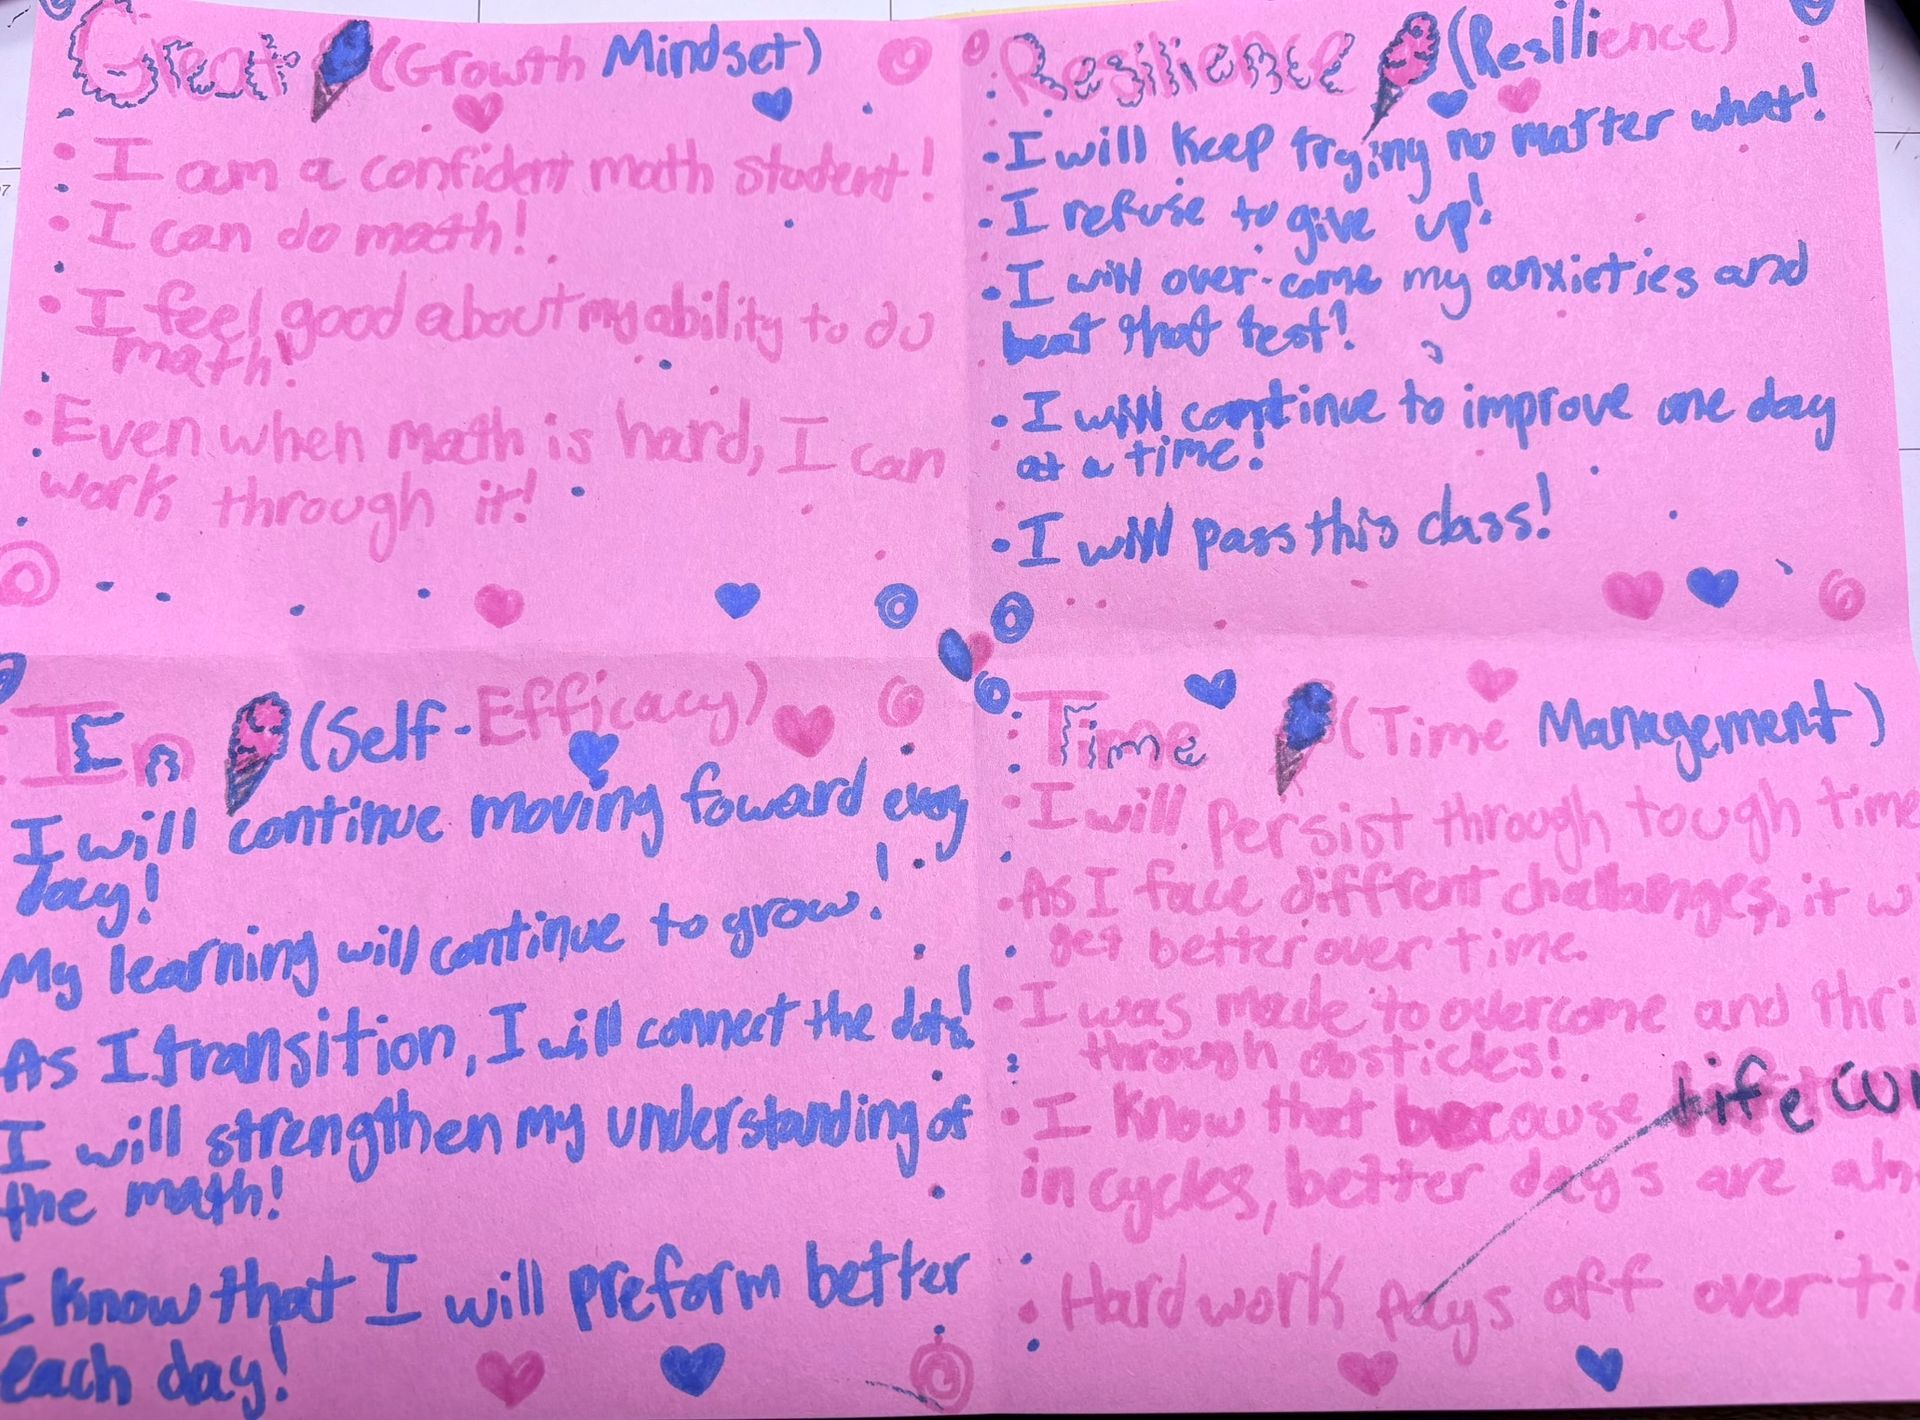 Great (Growth Mindset)
• I am a confident math student!
• I can do math!
• I feel good about my ability to do
math!
• Even when math is hard, I can
work through it!
Resilience (Resilience)
• I will keep trying no matter what!
• I refuse to give up!
• I will over-come my anxieties and
beat that test!
• I will continue to improve one day
at a time!
• I will pass this class!
In (Self-Efficacy)
I will continue moving foward every
day!
My learning will continue to grow!
As I transition, I will connect the dots!
I will strengthen my understanding of
the math!
I know that I will preform better
each day!
Time (Time Management)
• I will persist through tough time
• As I face diffrent challanges, it w
get better over time.
• I was made to overcome and thri
through obsticles!
• I know that because life co
in cycles, better days are al
• Hard work pays off over ti